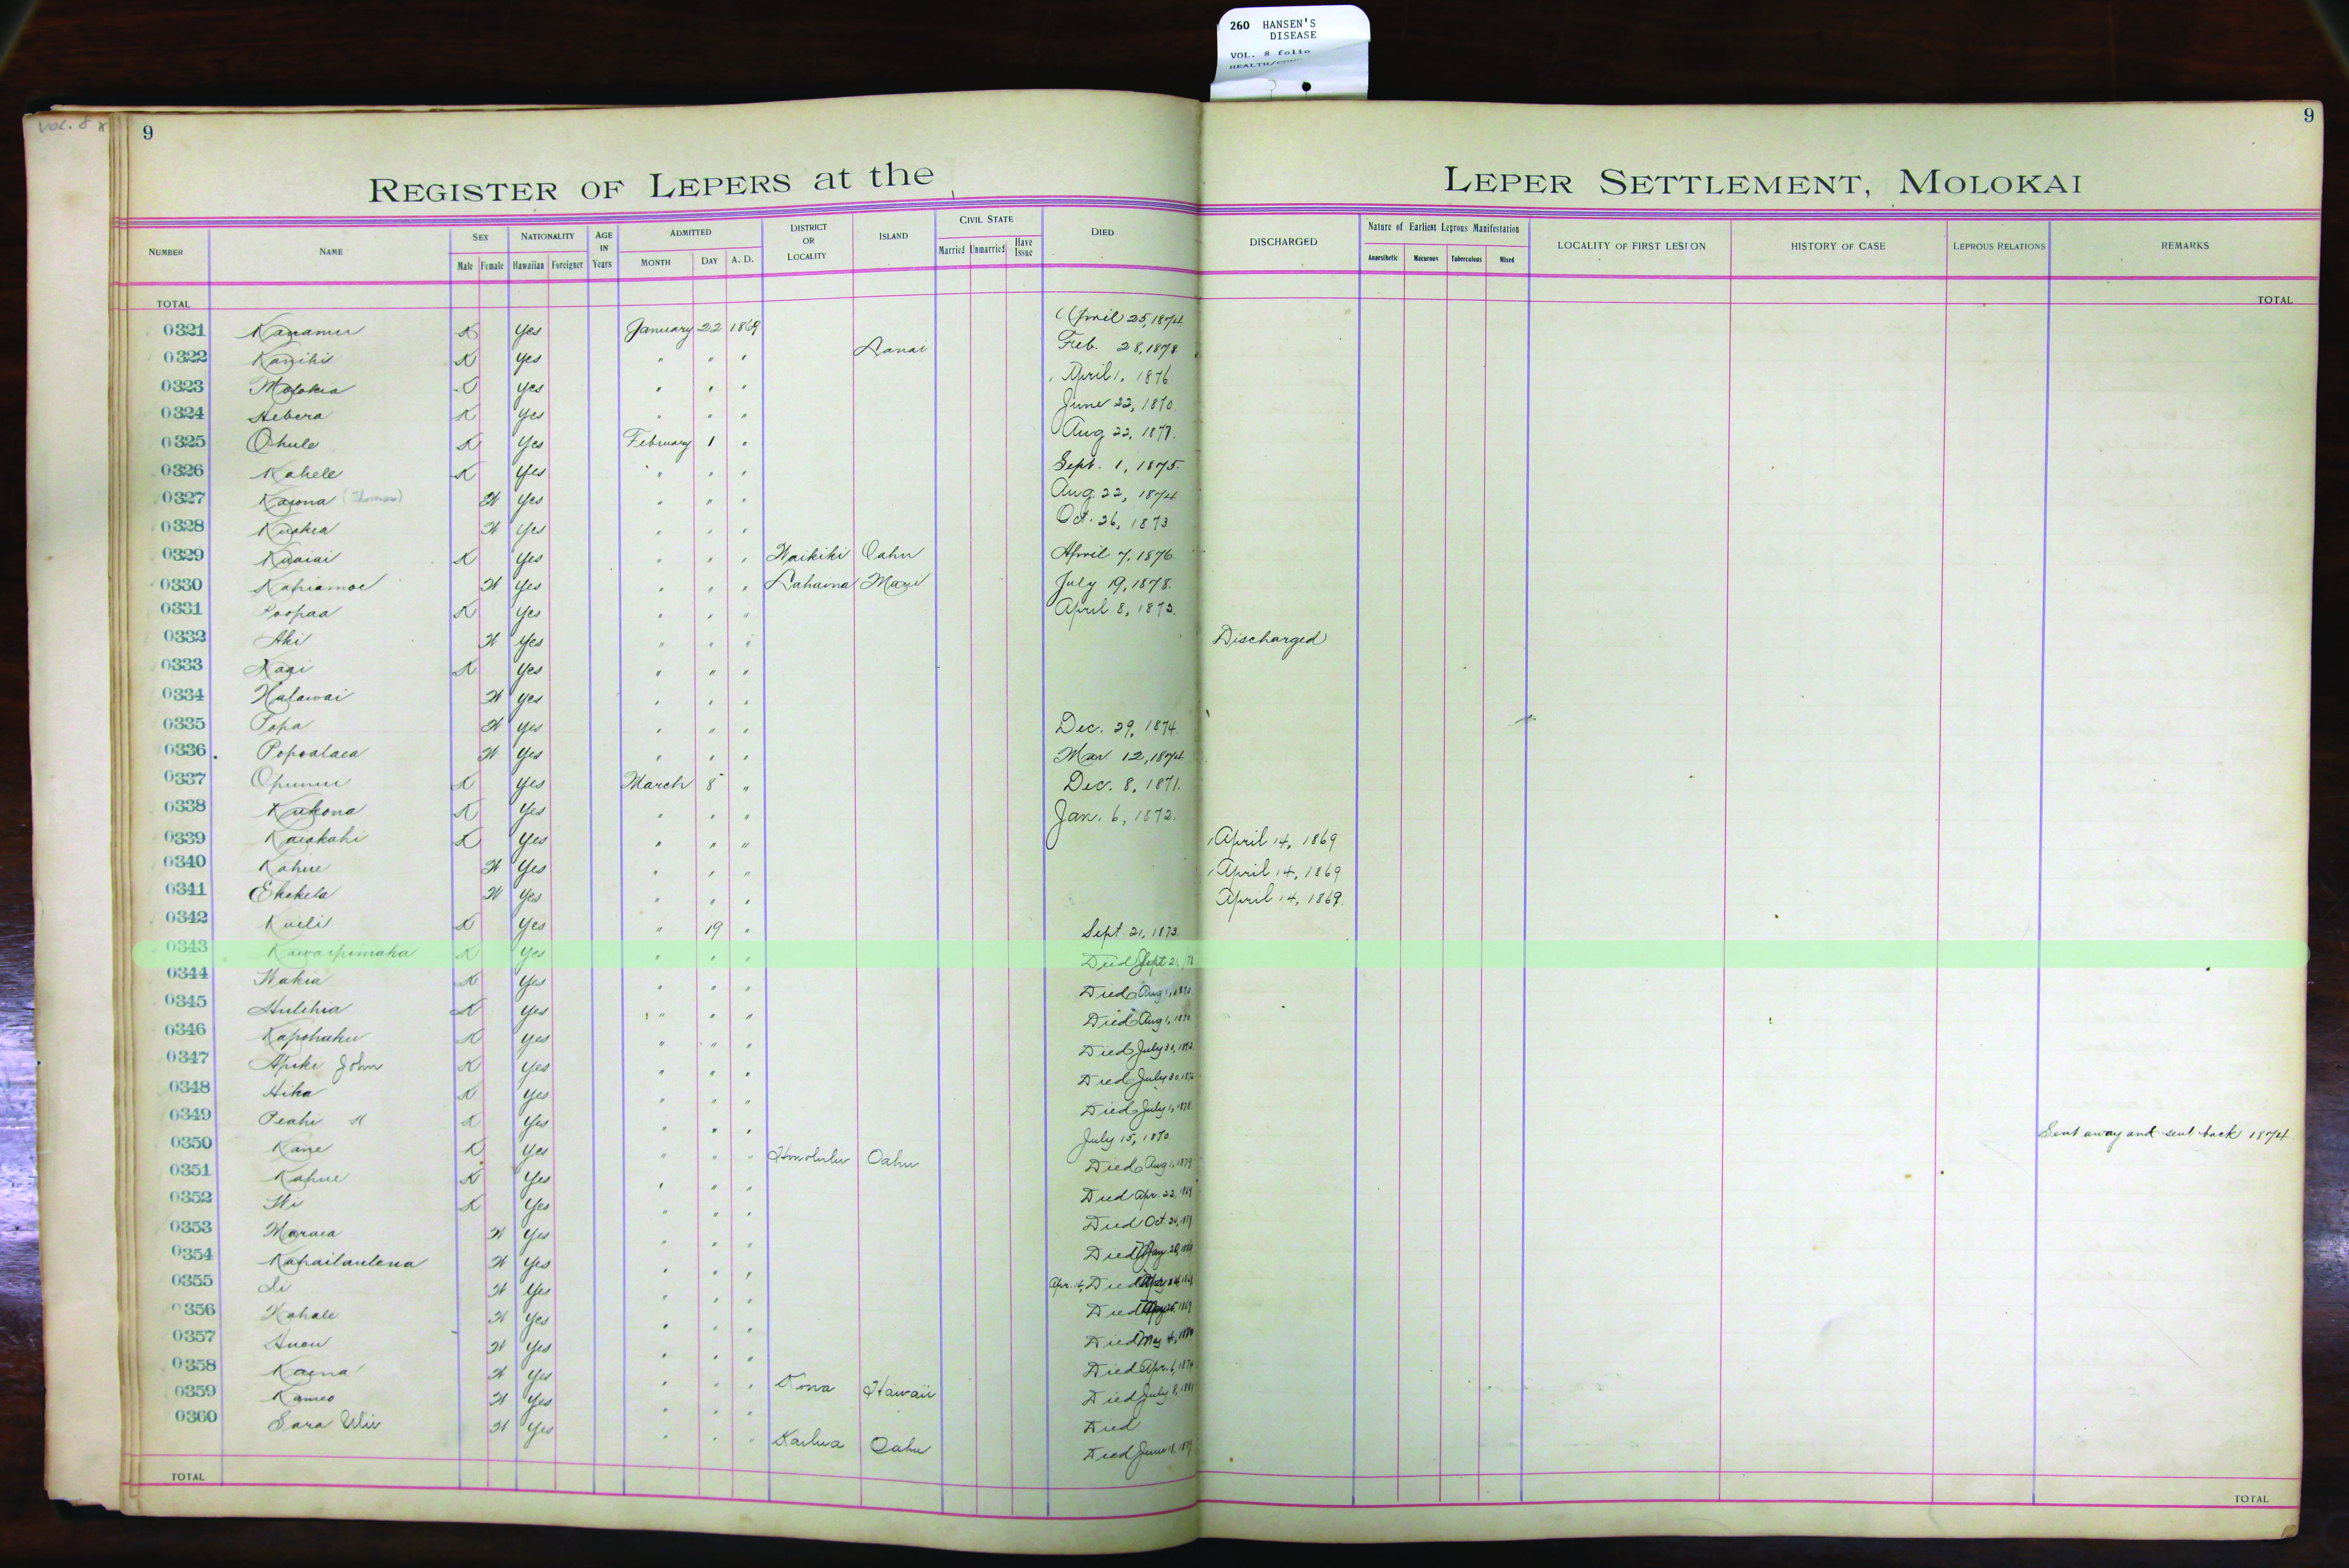 260 HANSEN'S
DISEASE
VOL. 8 folio
VOL. 8
9
9
REGISTER OF LEPERS at the LEPER SETTLEMENT, MOLOKAI
NUMBER NAME SEX Male Female NATIONALITY Hawaiian Foreigner AGE IN Years ADMITTED MONTH DAY A. D. DISTRICT OR LOCALITY ISLAND CIVIL STATE Married Unmarried Have Issue DIED DISCHARGED Nature of Earliest Leprous Manifestation Anaesthetic Macurous Tuberculous Mixed LOCALITY OF FIRST LESION HISTORY OF CASE LEPROUS RELATIONS REMARKS
TOTAL TOTAL
0321 Kanamu K Yes January 22 1869 April 25, 1874
0322 Kanihi K Yes " " " Lanai Feb. 28, 1878
0323 Molokia Yes " " " April 1, 1876
0324 Hebera K Yes " " " June 22, 1870
0325 Ohule K Yes February 1 " Aug 22, 1877.
0326 Kahele K Yes " " " Sept. 1, 1875.
0327 Kaiona (Thomas) W Yes " " " Aug. 22, 1874
0328 Kuakea W Yes " " " Oct. 26, 1873
0329 Kuaiai K Yes " " " Waikiki Oahu April 7, 1876
0330 Kapiamoe W Yes " " " Lahaina Maui July 19, 1878.
0331 Poopaa K Yes " " " April 8, 1873.
0332 Aki W Yes " " " Discharged
0333 Kaai K Yes " " "
0334 Halawai W Yes " " "
0335 Popa W Yes " " " Dec. 29, 1874
0336 Popoalaea W Yes " " " Mar. 12, 1874
0337 Opunui K Yes March 8 " Dec. 8, 1871.
0338 Kukona K Yes " " " Jan. 6, 1872.
0339 Kaiakahi K Yes " " " April 14, 1869
0340 Kahue W Yes " " " April 14, 1869
0341 Ekekela W Yes " " " April 14, 1869.
0342 Kuili K Yes " 19 " Sept. 21, 1873.
0343 Kawaipimaka K Yes " " " Died Sept 21,
0344 Wakia K Yes " " " Died Aug 1, 1870
0345 Hulihia K Yes " " " Died Aug 1, 1870
0346 Kapohaku K Yes " " " Died July 30, 1872
0347 Apiki John K Yes " " " Died July 30, 1872
0348 Hika K Yes " " " Died July 1, 1878
0349 Peahi K Yes " " " July 15, 1870 Sent away and sent back 1874.
0350 Kane K Yes " " " Honolulu Oahu Died Aug 1, 1879
0351 Kahue K Yes " " " Died Apr. 22, 1869
0352 Wi K Yes " " " Died Oct.
0353 Maraea W Yes " " " Died
0354 Kahailaulena W Yes " " " Apr. 14, Died
0355 Li W Yes " " " Died
0356 Kahale W Yes " " " Died May 4,
0357 Auou W Yes " " " Died Apr. 6, 1874
0358 Kaena W Yes " " " Kona Hawaii Died July 8, 1881
0359 Kameo W Yes " " " Died
0360 Sara Wiu W Yes " " " Kailua Oahu Died June 18, 1879
TOTAL TOTAL